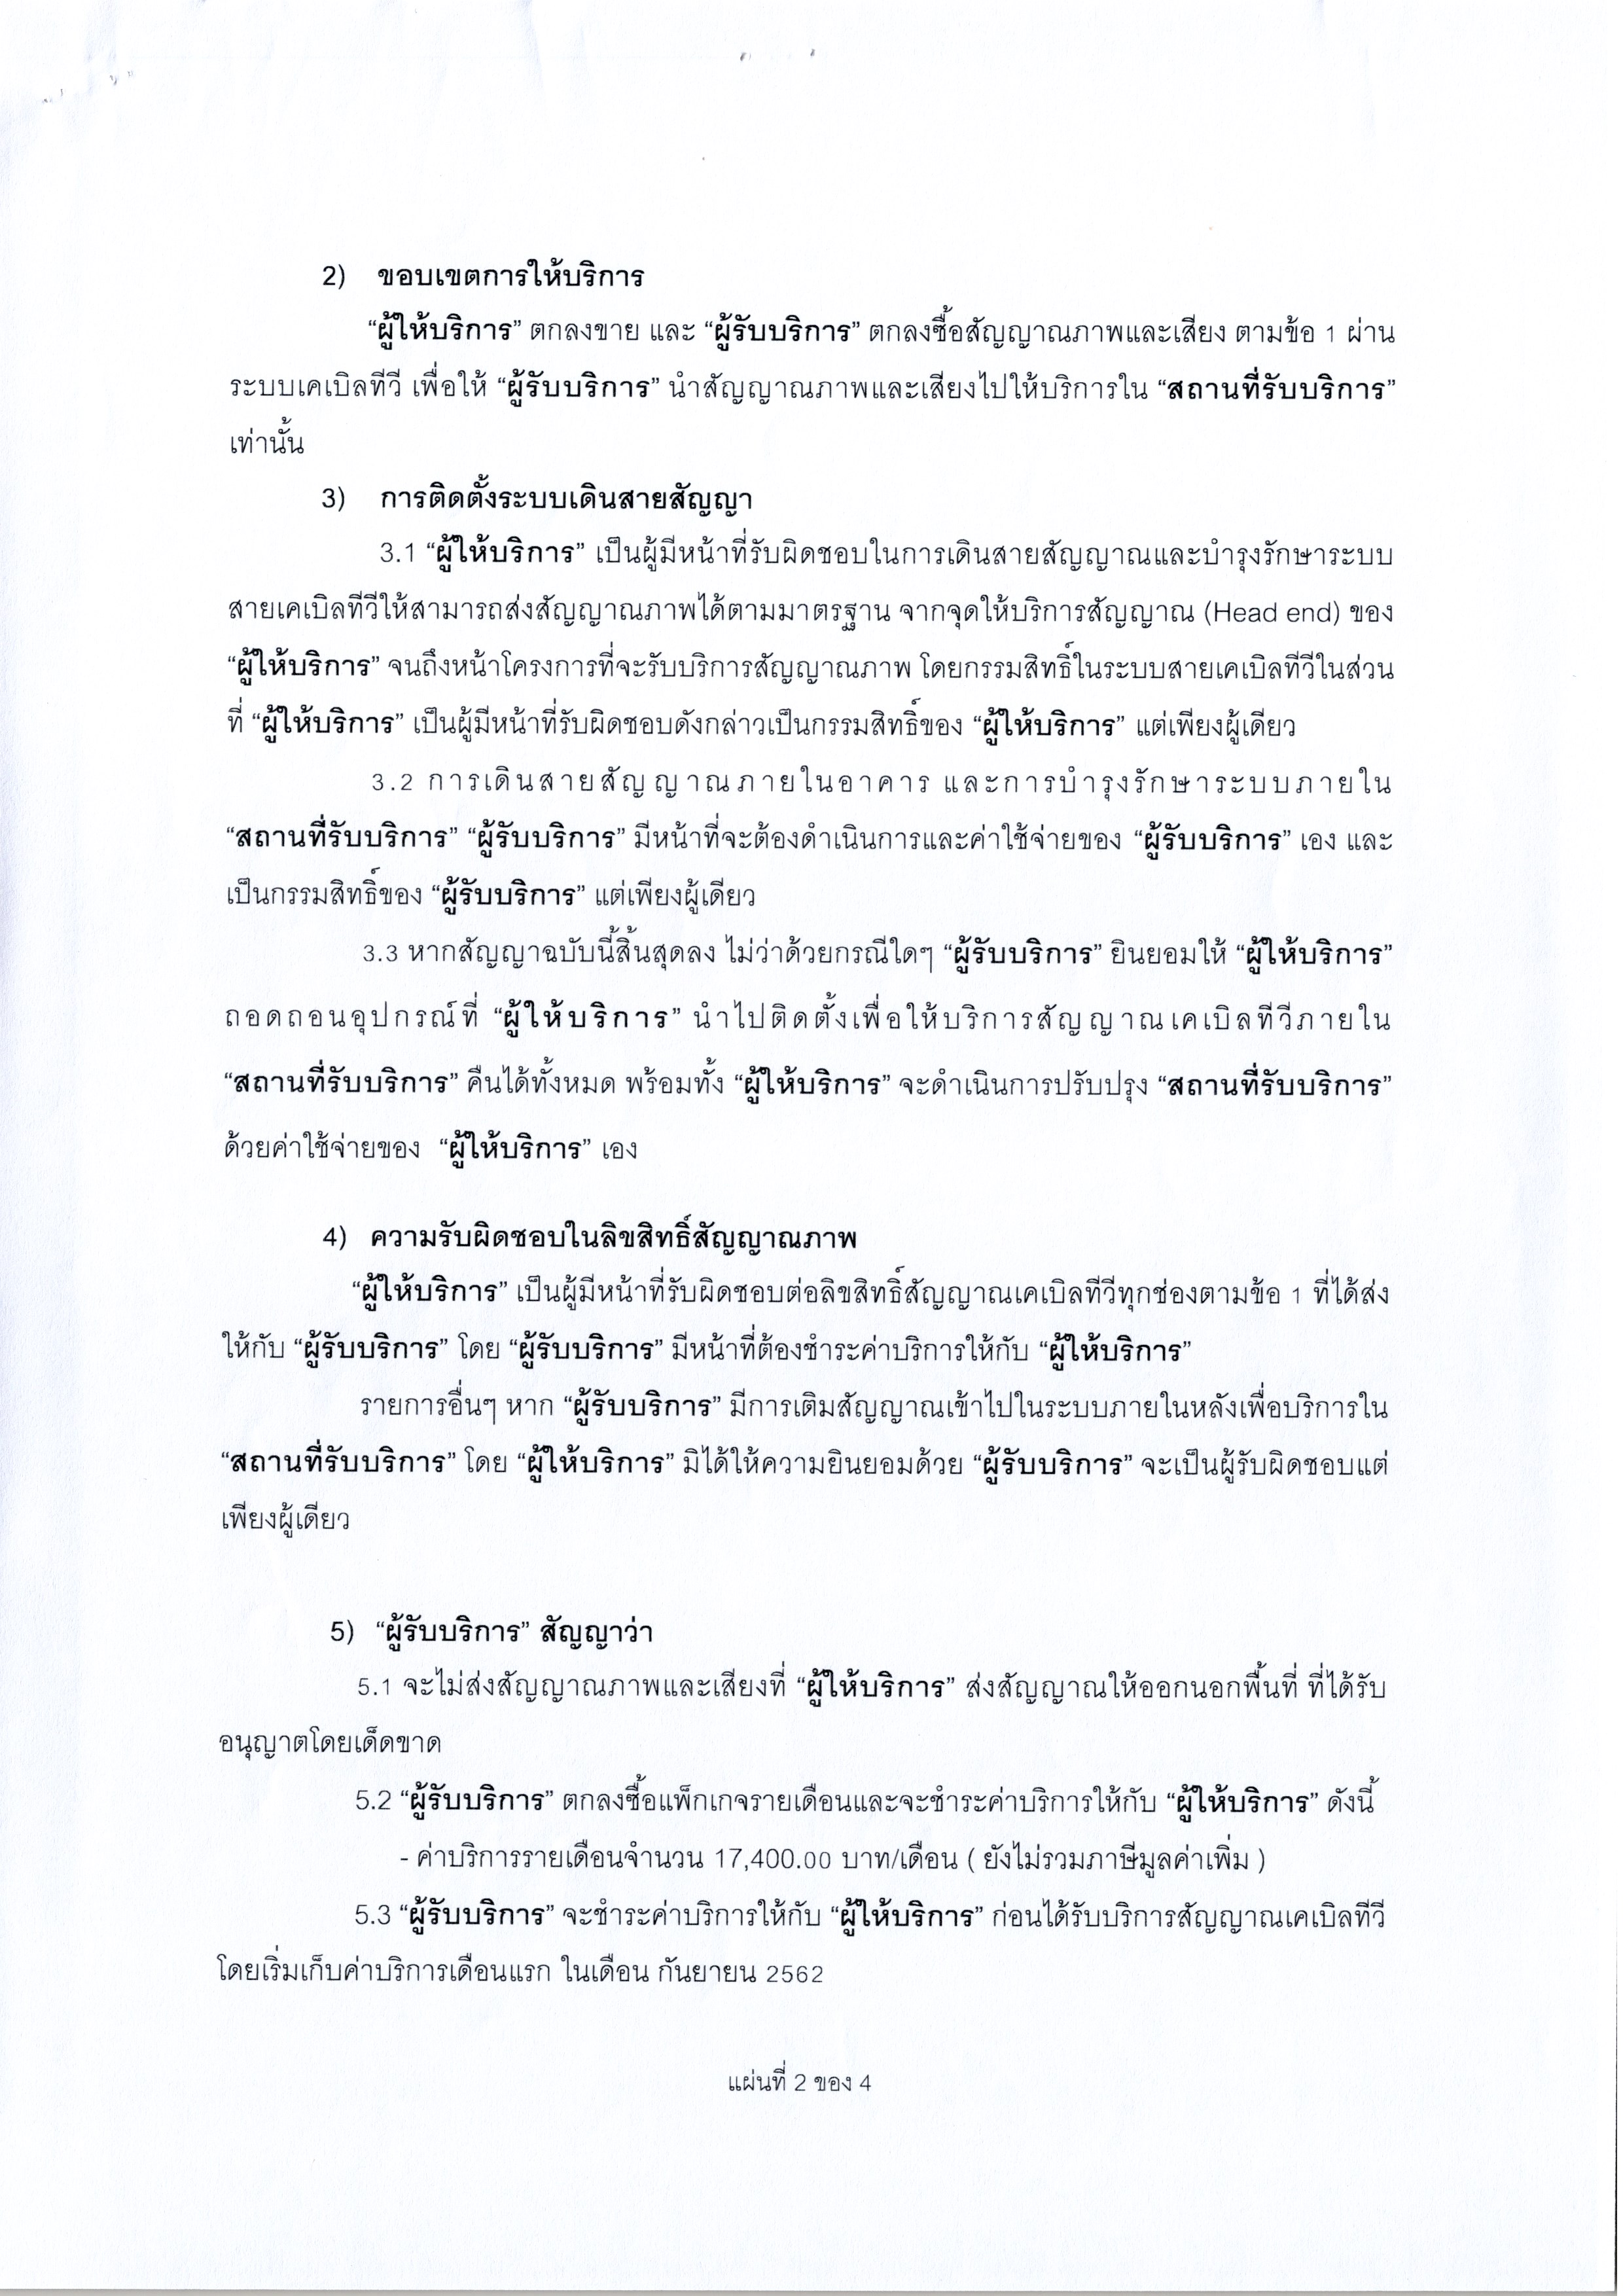 2) ขอบเขตการให้บริการ
“ผู้ให้บริการ” ตกลงขาย และ “ผู้รับบริการ” ตกลงซื้อสัญญาณภาพและเสียง ตามข้อ 1 ผ่าน
ระบบเคเบิลทีวี เพื่อให้ “ผู้รับบริการ” นำสัญญาณภาพและเสียงไปให้บริการใน “สถานที่รับบริการ”
เท่านั้น
3) การติดตั้งระบบเดินสายสัญญา
3.1 “ผู้ให้บริการ” เป็นผู้มีหน้าที่รับผิดชอบในการเดินสายสัญญาณและบำรุงรักษาระบบ
สายเคเบิลทีวีให้สามารถส่งสัญญาณภาพได้ตามมาตรฐาน จากจุดให้บริการสัญญาณ (Head end) ของ
“ผู้ให้บริการ” จนถึงหน้าโครงการที่จะรับบริการสัญญาณภาพ โดยกรรมสิทธิ์ในระบบสายเคเบิลทีวีในส่วน
ที่ “ผู้ให้บริการ” เป็นผู้มีหน้าที่รับผิดชอบดังกล่าวเป็นกรรมสิทธิ์ของ “ผู้ให้บริการ” แต่เพียงผู้เดียว
3.2 การเดินสายสัญญาณภายในอาคาร และการบำรุงรักษาระบบภายใน
“สถานที่รับบริการ” “ผู้รับบริการ” มีหน้าที่จะต้องดำเนินการและค่าใช้จ่ายของ “ผู้รับบริการ” เอง และ
เป็นกรรมสิทธิ์ของ “ผู้รับบริการ” แต่เพียงผู้เดียว
3.3 หากสัญญาฉบับนี้สิ้นสุดลง ไม่ว่าด้วยกรณีใดๆ “ผู้รับบริการ” ยินยอมให้ “ผู้ให้บริการ”
ถอดถอนอุปกรณ์ที่ “ผู้ให้บริการ” นำไปติดตั้งเพื่อให้บริการสัญญาณเคเบิลทีวีภายใน
“สถานที่รับบริการ” คืนได้ทั้งหมด พร้อมทั้ง “ผู้ให้บริการ” จะดำเนินการปรับปรุง “สถานที่รับบริการ”
ด้วยค่าใช้จ่ายของ “ผู้ให้บริการ” เอง
4) ความรับผิดชอบในลิขสิทธิ์สัญญาณภาพ
“ผู้ให้บริการ” เป็นผู้มีหน้าที่รับผิดชอบต่อลิขสิทธิ์สัญญาณเคเบิลทีวีทุกช่องตามข้อ 1 ที่ได้ส่ง
ให้กับ “ผู้รับบริการ” โดย “ผู้รับบริการ” มีหน้าที่ต้องชำระค่าบริการให้กับ “ผู้ให้บริการ”
รายการอื่นๆ หาก “ผู้รับบริการ” มีการเติมสัญญาณเข้าไปในระบบภายในหลังเพื่อบริการใน
“สถานที่รับบริการ” โดย “ผู้ให้บริการ” มิได้ให้ความยินยอมด้วย “ผู้รับบริการ” จะเป็นผู้รับผิดชอบแต่
เพียงผู้เดียว
5) “ผู้รับบริการ” สัญญาว่า
5.1 จะไม่ส่งสัญญาณภาพและเสียงที่ “ผู้ให้บริการ” ส่งสัญญาณให้ออกนอกพื้นที่ ที่ได้รับ
อนุญาตโดยเด็ดขาด
5.2 “ผู้รับบริการ” ตกลงซื้อแพ็กเกจรายเดือนและจะชำระค่าบริการให้กับ “ผู้ให้บริการ” ดังนี้
- ค่าบริการรายเดือนจำนวน 17,400.00 บาท/เดือน ( ยังไม่รวมภาษีมูลค่าเพิ่ม )
5.3 “ผู้รับบริการ” จะชำระค่าบริการให้กับ “ผู้ให้บริการ” ก่อนได้รับบริการสัญญาณเคเบิลทีวี
โดยเริ่มเก็บค่าบริการเดือนแรก ในเดือน กันยายน 2562
แผ่นที่ 2 ของ 4